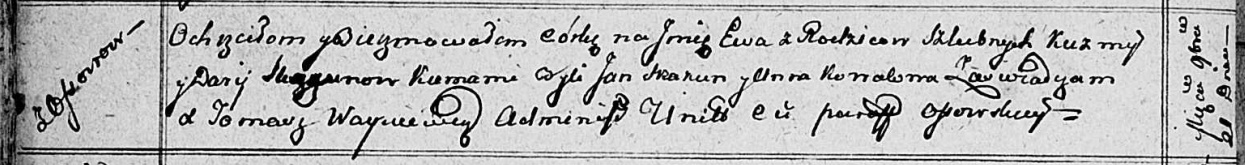 z Osowow
Ochrzciłem y Bierzmowałem Córkę na Jmię Ewa z Rodzicow Szlubnych Kuzmy
y Daryi Skakunow Kumami byli Jan Skakun y Anna Kowalowa Zaswiadczam
X Tomasz Administ Unit C U paraff osowskiey =
Mięca 9bra w
21 Dniu